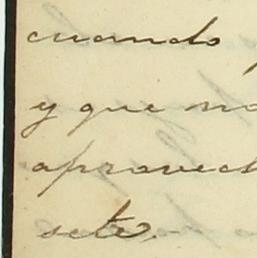 cuando
y que no
aprovech
sete.